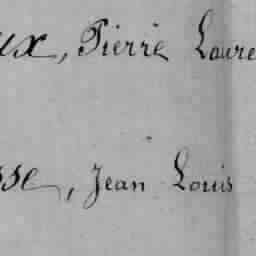 ux, Pierre Laure
sse, Jean Louis